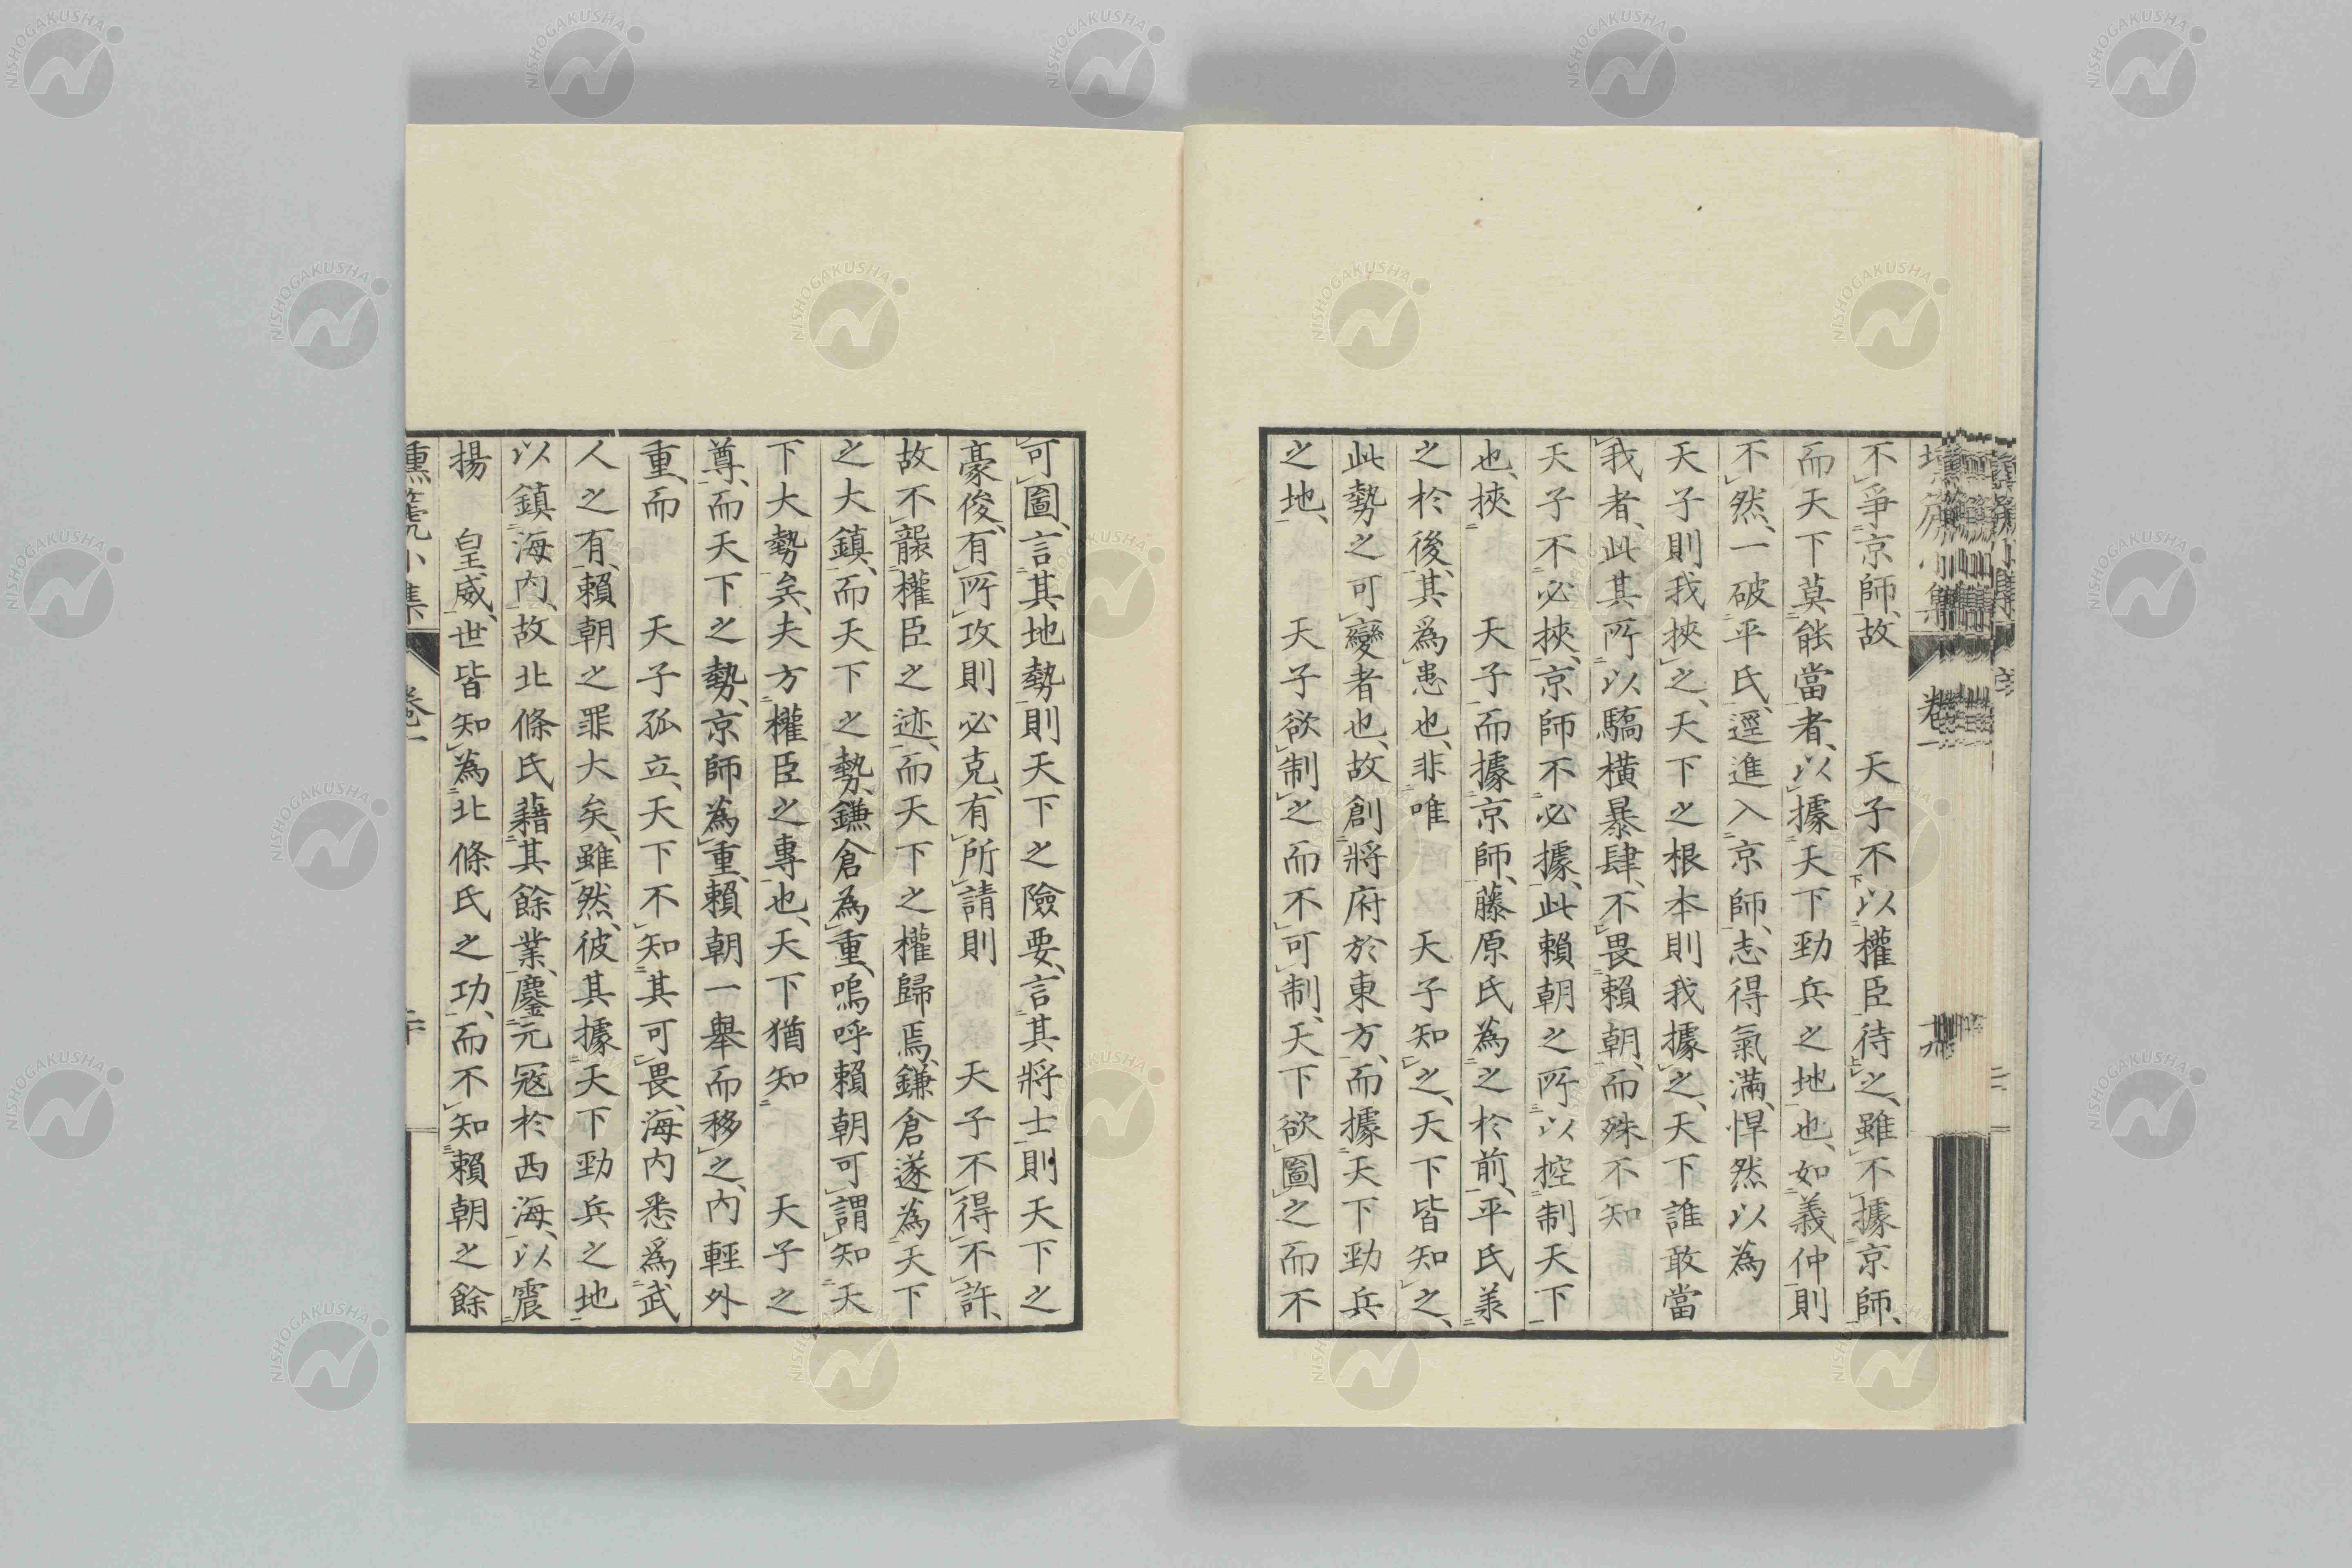 不爭京師、故　天子不以權臣待之、雖不據京師、
而天下莫能當者、以據天下勁兵之地也、如義仲則
不然、一破平氏、逕進入京師、志得氣滿、悍然以為
天子則我挾之、天下之根本則我據之、天下誰敢當
我者、此其所以驕橫暴肆、不畏賴朝、而殊不知
天子不必挾、京師不必據、此賴朝之所以控制天下
也、挾　天子而據京師、藤原氏為之於前、平氏羕
之於後、其爲患也、非唯　天子知之、天下皆知之、
此勢之可變者也、故創將府於東方、而據天下勁兵
之地、　天子欲制之而不可制、天下欲圖之而不
可圖、言其地勢則天下之險要、言其將士則天下之
豪俊、有所攻則必克、有所請則　天子不得不許、
故不露權臣之迹、而天下之權歸焉、鎌倉遂為天下
之大鎮、而天下之勢、鎌倉為重、嗚呼賴朝可謂知天
下大勢矣、夫方權臣之專也、天下猶知　天子之
尊、而天下之勢、京師為重、賴朝一舉而移之、內輕外
重、而　天子孤立、天下不知其可畏、海內悉爲武
人之有、賴朝之罪大矣、雖然、彼其據天下勁兵之地
以鎮海內、故北條氏藉其餘業、鏖元冦於西海、以震
揚　皇威、世皆知為北條氏之功、而不知賴朝之餘
小集
卷一
NISHOGAKUSHA